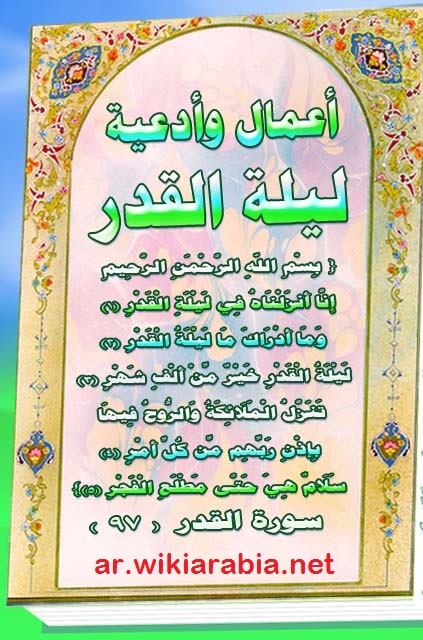 أعمال وأدعية
ليلة القدر
{ بِسْمِ اللَّهِ الرَّحْمَنِ الرَّحِيمِ
إِنَّا أَنزَلْنَاهُ فِي لَيْلَةِ الْقَدْرِ (١)
وَمَا أَدْرَاكَ مَا لَيْلَةُ الْقَدْرِ (٢)
لَيْلَةُ الْقَدْرِ خَيْرٌ مِّنْ أَلْفِ شَهْرٍ (٣)
تَنَزَّلُ الْمَلَائِكَةُ وَالرُّوحُ فِيهَا
بِإِذْنِ رَبِّهِم مِّن كُلِّ أَمْرٍ (٤)
سَلَامٌ هِيَ حَتَّى مَطْلَعِ الْفَجْرِ (٥)}
سورة القدر ( ٩٧ )
ar.wikiarabia.net